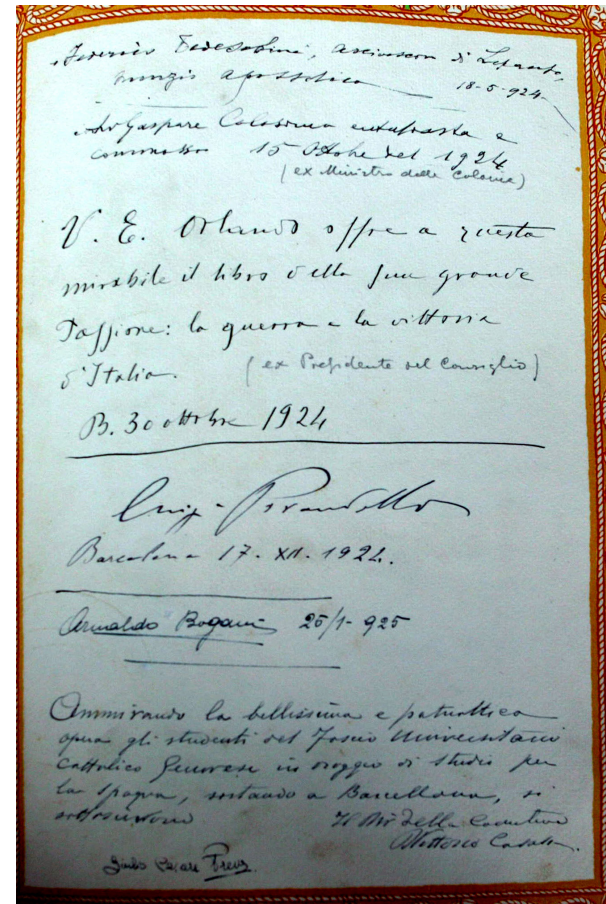 Federico Tedeschini, arcivescovo di Lepanto,
nunzio apostolico
18-5-924
Avv Gaspare Colosimo entusiasta e
commosso 15 Ottobre del 1924
(ex Ministro delle Colonie)
V. E. Orlando offre a questa
mirabile il libro della sua grande
Passione: la guerra e la vittoria
d'Italia. (ex Presidente del Consiglio)
B. 30 ottobre 1924
Luigi Pirandello
Barcelona 17. XII. 1924.
Arnaldo 25/1-925
Ammirando la bellissima e patriottica
opera gli studenti del Fascio Universitario
Cattolico Genovese in viaggio di studio per
la Spagna, sostando a Barcellona, si
sottoscrivono
Il della Comitiva
Vittorio
Giulio Cesare